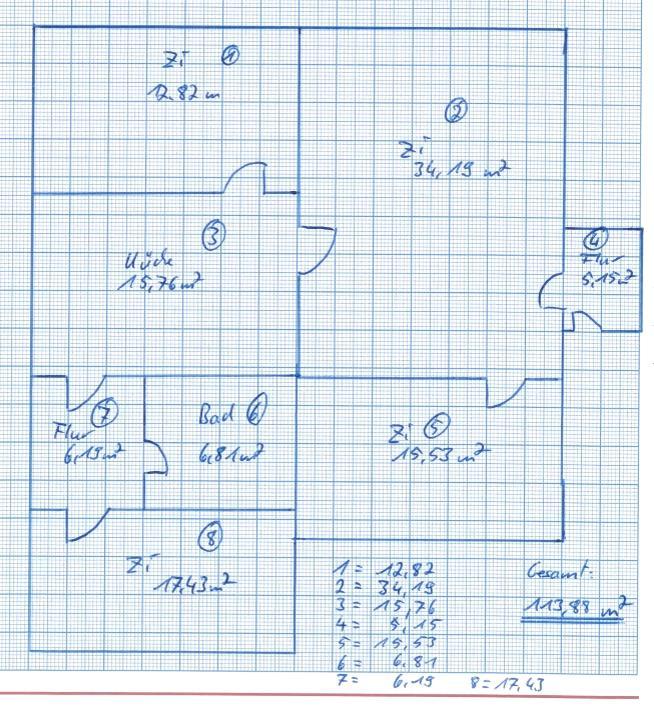 Zi 1
12.82 m
2
Zi
34,19 m²
3
Küche
15,76 m²
4
Flur
5,15 m²
7
Flur
6,19 m²
Bad 6
6,81 m²
Zi 5
15,53 m²
8
Zi
17,43 m²
1 = 12,82
2 = 34,19
3 = 15,76
4 = 5,15
5 = 15,53
6 = 6,81
7 = 6,19 8 = 17,43
Gesamt:
113,88 m²